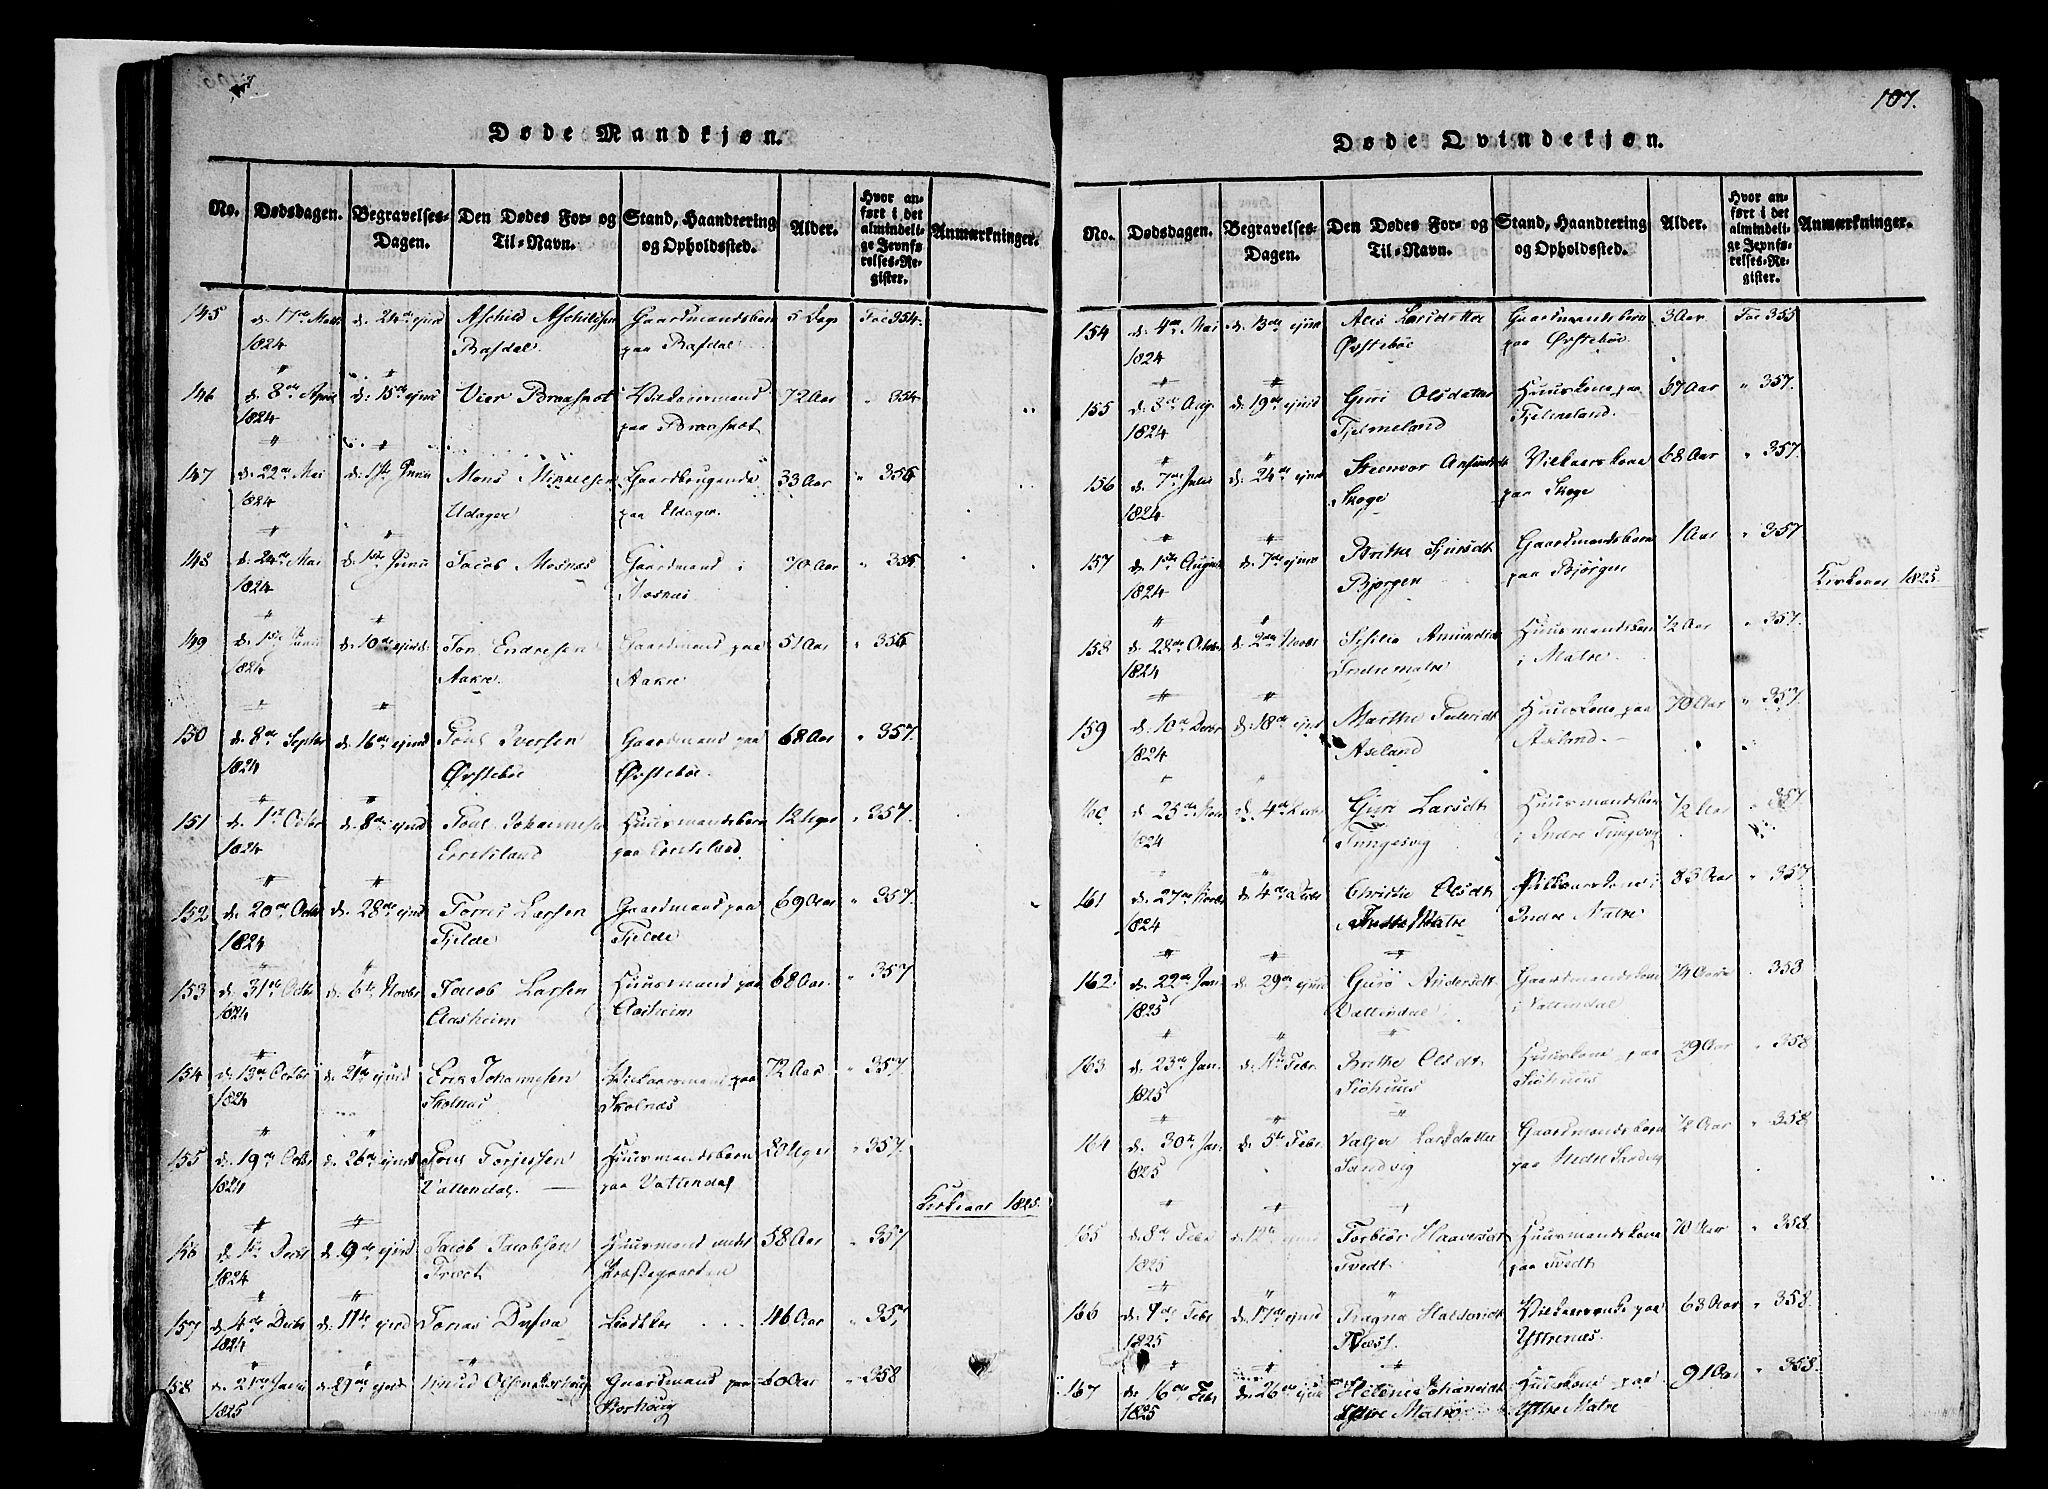 Døde Mandkjøn.
No. Dødsdagen. Begravelses-Dagen. Den Dødes For- og Til-Navn. Stand, Haandtering og Opholdssted. Alder. Hvor anført i det almindelige Jevnførelses-Register. Anmærkninger.
145 d. 17de d. 24de ejusd 5 Dage Fol 354.
1824
146 d. 8de April d. 15de ejusd Vier 72 Aar " 354
1824 paa
147 d. 22de Mai d. 1ste Junii Mons Mikkelsen Gaardbrugende 33 Aar " 356
1824 Udager paa Udager
148 d. 24de Mai d. 1ste Junii Jacob Mosnæs Gaardmand i 70 Aar " 356
1824 Mosnæs
149 d. 1ste Junii d. 10de ejusd. Jon Endresen Gaardmand paa 51 Aar " 356
1824 Aakre. Aakre
150 d. 8de Septbr d. 16de ejusd Poul Iversen Gaardmand paa 68 Aar " 357.
1824 Øvstebøe Øvstebøe.
151 d. 1ste Octbr d. 8de ejusd Poul Johannesen Huusmandsbarn 12 Uger " 357.
1824 paa
152 d. 20de Octbr d. 28de ejusd Torres Larsen Gaardmand paa 69 Aar " 357.
1824 Fjelde Fjelde
153 d. 31te Octbr d. 6te Novbr Jacob Larsen Huusmand paa 68 Aar. " 357
1824 Aasheim Aasheim
154 d. 13de Octbr d. 21de ejusd Erik Johannesen Vilkaarsmand paa 72 Aar " 357
1824 Skolnæs Skolnæs
155 d. 19de Octbr d. 26de ejusd Poul Torjessen Huusmandsbarn 20 Uger " 357.
1824 Vattendal. paa Vattendal
Kirkeaar 1825.
156 d. 1ste Decbr d. 9de ejusd Jacob Jacobsen Huusmand under 58 Aar " 357
1824 Træet Præstegaarden
157 d. 4de Decbr d. 11te ejusd Jonas 46 Aar " 357
1824
158 d. 21de Janu d. 29de ejusd Knud Olsen Gaardmand paa 60 Aar " 358
1825

107.
Døde Qvindekjøn.
No. Dødsdagen. Begravelses-Dagen. Den Dødes For- og Til-Navn. Stand, Haandtering og Opholdssted. Alder. Hvor anført i det almindelige Jevnførelses-Register. Anmærkninger.
154 d. 4de Mai d. 13de ejusd Larsdatter Gaardmandsbarn 3 Aar Fol 355
1824 Øvstebøe paa Øvstebøe.
155 d. 8de Aug. d. 19de ejusd Guri Olsdatter Huuskone paa 67 Aar " 357.
1824 Fjelmeland Fjelmeland.
156 d. 7de Julii d. 24de ejusd Steenvor Vilkaarskone 68 Aar " 357.
1824 Skoge paa Skoge
157 d. 1ste August d. 7de ejusd Brithe Gaardmandsbarn 1 Aar " 357
1824 Bjørgen paa Bjørgen
Kirkeaar 1825.
158 d. 28de Octbr d. 2den Novbr Amundsdt Huusmandsbarn 1/2 Aar " 357.
1824 Indre Matre i Matre.
159 d. 10de Decbr d. 18de ejusd Marthe Huuskone paa 70 Aar " 357.
1824 Axeland Axland.
160 d. 25de Nov d. 4de Decbr Guri Larsdt Huusmandsbarn 1/2 Aar " 357
1824 Tungesvig i Indre Tungesvig
161 d. 27de Novbr d. 4de Decbr Christie Olsdt Vilkaarskone i 83 Aar " 357
1824 Indre Matre Indre Matre.
162. d. 22de Jan. d. 29de ejusd Guro Andersdt Gaardmandskone 74 Aar " 358
1825 Vattendal i Vattendal
163 d. 23de Jan. d. 1ste Febr. Brithe Olsdt Huuskone paa 29 Aar " 358
1825 Siøhuus Siøhuus
164 d. 30te Jan. d. 5te Febr. Valjer Larsdatter Gaardmandsbarn 1/2 Aar " 358
1825 Sandvig paa Sandvig
165 d. 8de Febr d. 12te ejusd Torbiør Haaversdt Huusmandskone 70 Aar " 358.
1825 Tvedt paa Tvedt
166 d. 9de Febr d. 17de ejusd Ragna Haldorsdt Vilkaarsenke paa 63 Aar " 358.
1825 Næss. Yttrenæs.
167 d. 16de Febr d. 26de ejusd Helene Johansdt Huuskone paa 91 Aar " 358.
1825 Yttre Matre Yttre Matre